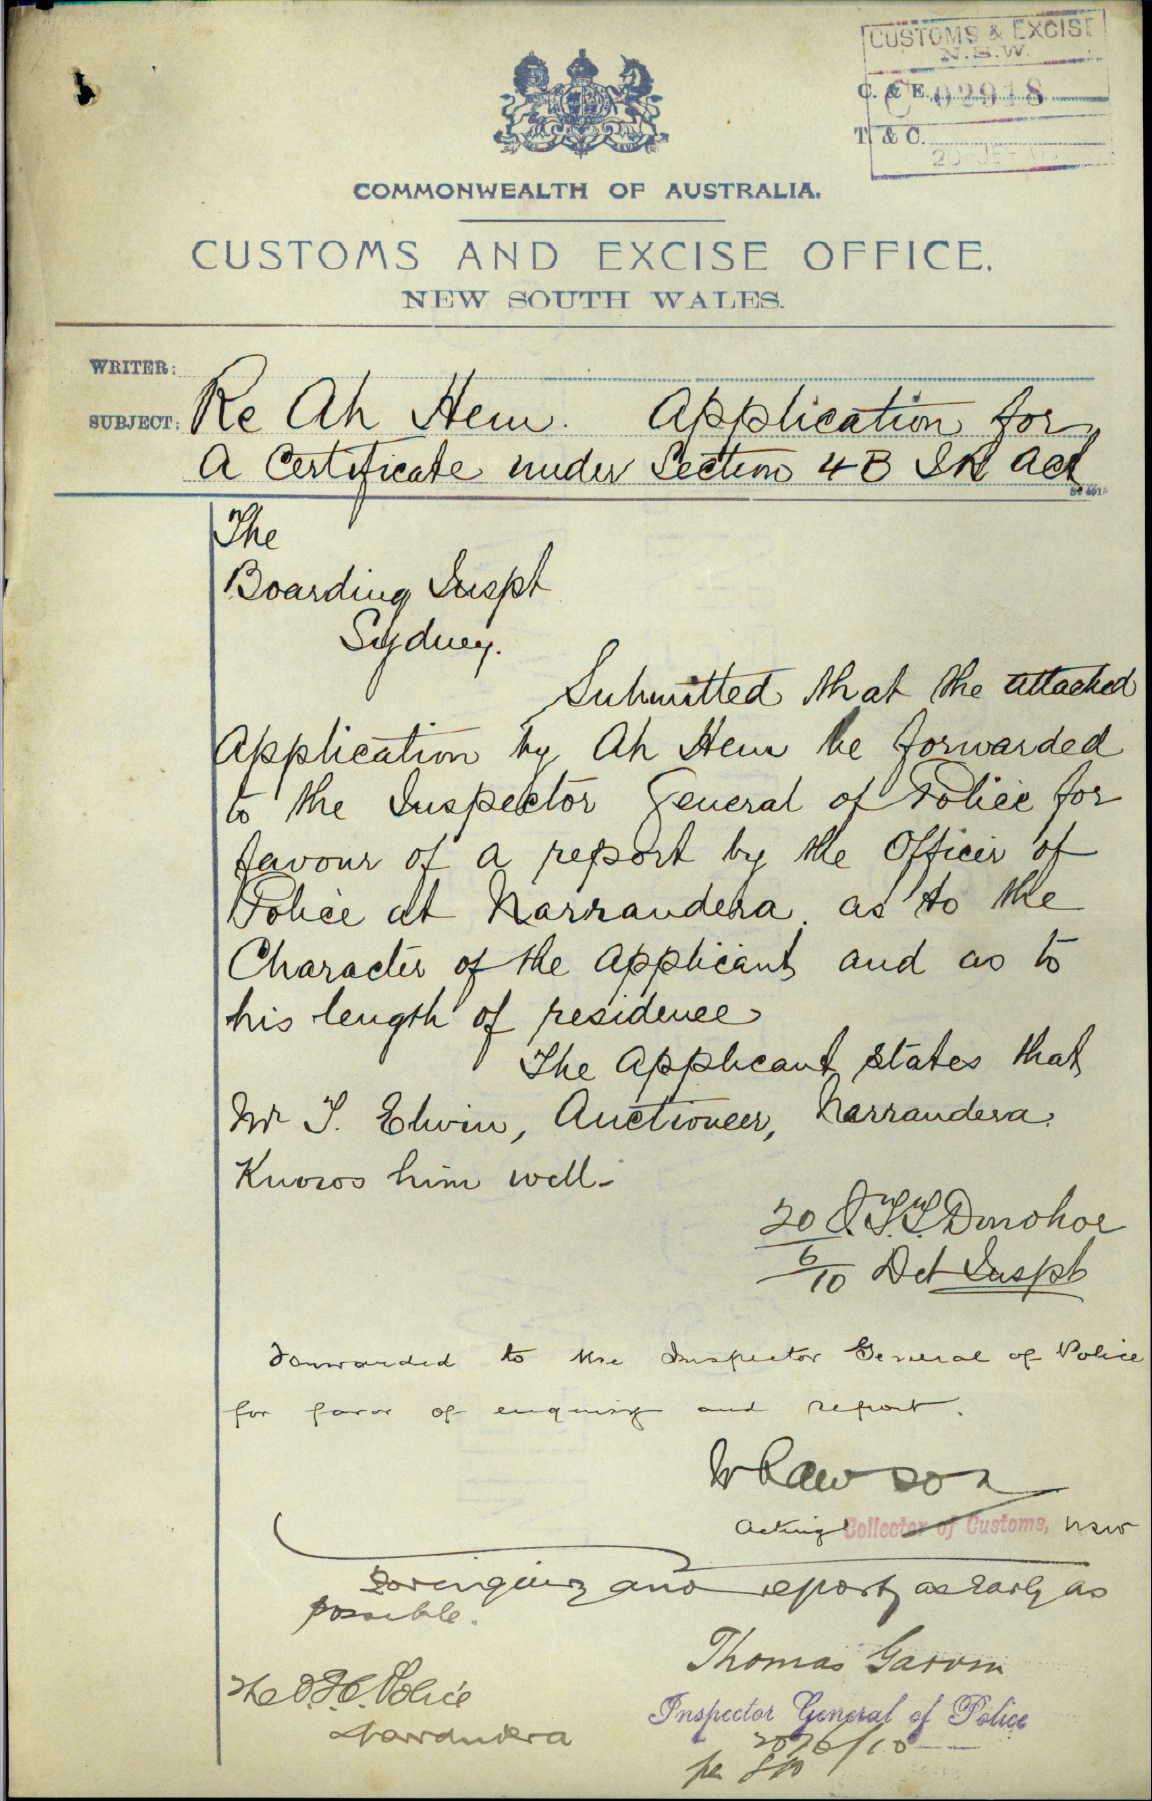 CUSTOMS & EXCISE
N.S.W.
C. & E. C 02918
T. & C.
COMMONWEALTH OF AUSTRALIA.
CUSTOMS AND EXCISE OFFICE.
NEW SOUTH WALES.
WRITER:
SUBJECT: Re Ah Hem. Application for
A Certificate under Section 4B IR Act
The
Boarding Inspt
Sydney.
Submitted that the attached
Application by Ah Hem be forwarded
to the Inspector General of Police for
favour of a report by the Officer of
Police at Narrandera. as to the
Character of the Applicant and as to
his length of residence
The Applicant states that
Mr T. Elwin, Auctioneer, Narrandera.
Knows him well-
20 J.T.T. Donohoe
6
10 Det Inspt
Forwarded to the Inspector General of Police
for favor of enquiry and report.
W Lawson
Acting Collector of Customs, NSW
For inquiry and report, as early as
possible.
Thomas Garvin
The O.I.C. Police
Narrandera
Inspector General of Police
20/6/10
per